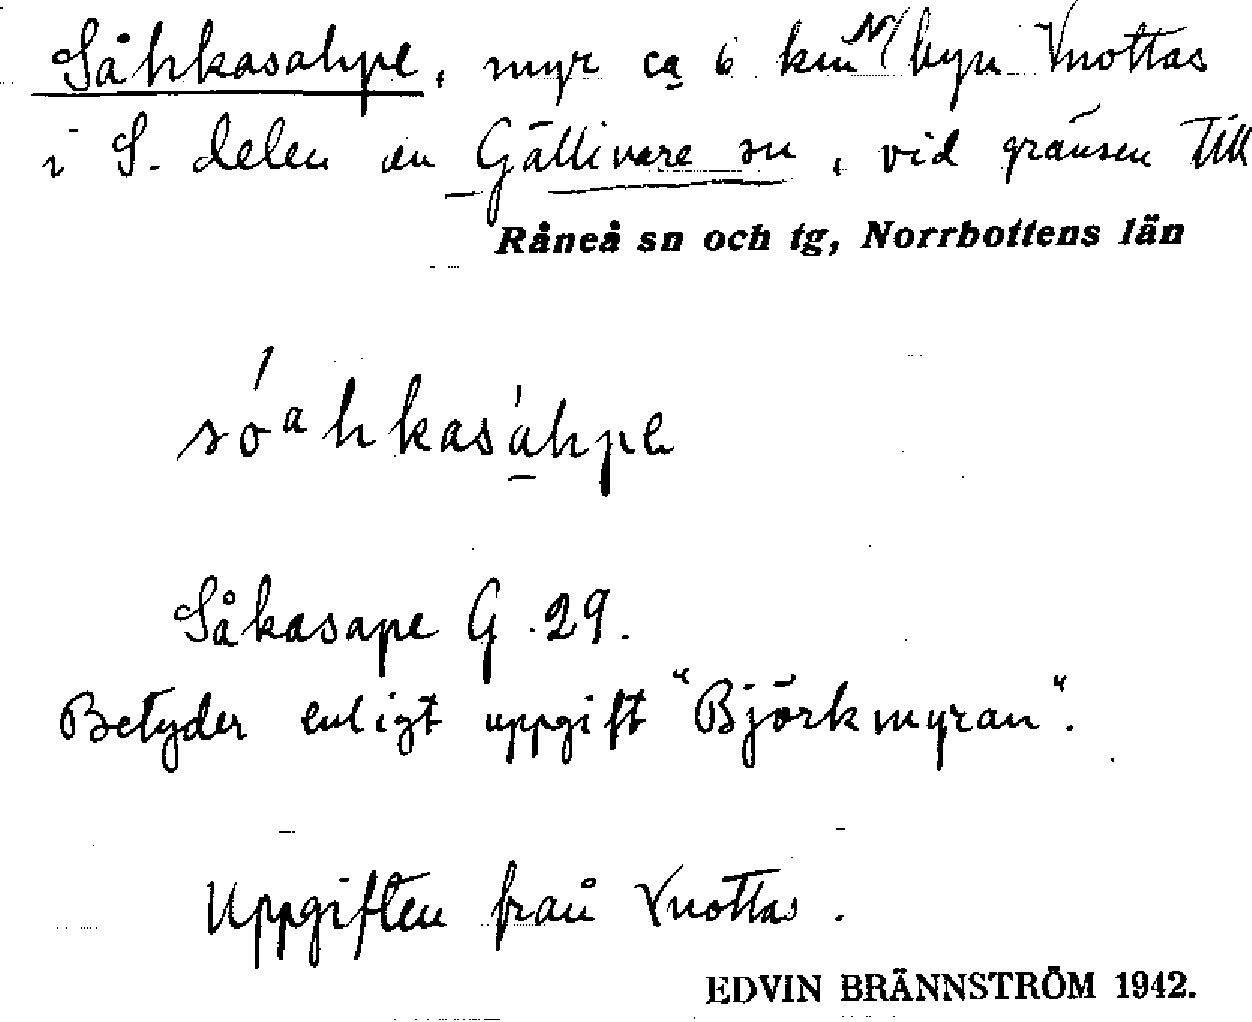 Såhkasahpe, myr ca 6 km N/ byn Vuottas
i S. delen av Gällivare sn, vid gränsen till
Råneå sn och tg, Norrbottens län
sóᵃhkasáhpe
Såkasape G. 29.
Betyder enligt uppgift "Björkmyran".
Uppgiften från Vuottas.
EDVIN BRÄNNSTRÖM 1942.